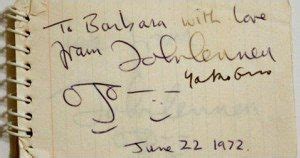 To Barbara with love
from John Lennon
Yoko Ono
June 22 1972.